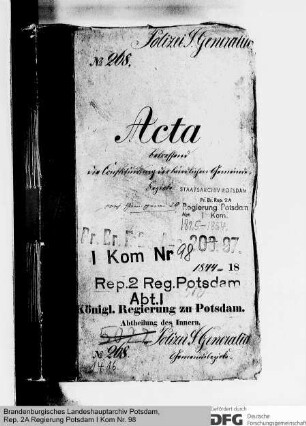 Polizei S. Generalia
№ 208.
Acta
betreffend
die Constituirung der ländlichen Gemeinde
Bezirke
STAATSARCHIV POTSDAM
Pr. Br. Rep. 2A
Regierung Potsdam
Abt. I Kom.
Pr. Br.
I Kom Nr 98
1844 18
Rep.2 Reg.Potsdam
Abt.I
Königl. Regierung zu Potsdam.
Abtheilung des Innern.
Polizei S. Generalia
№ 208.
Gemeindebezirke
1416
Brandenburgisches Landeshauptarchiv Potsdam,
Rep. 2A Regierung Potsdam I Kom Nr. 98
Gefördert durch
DFG Deutsche
Forschungsgemeinschaft